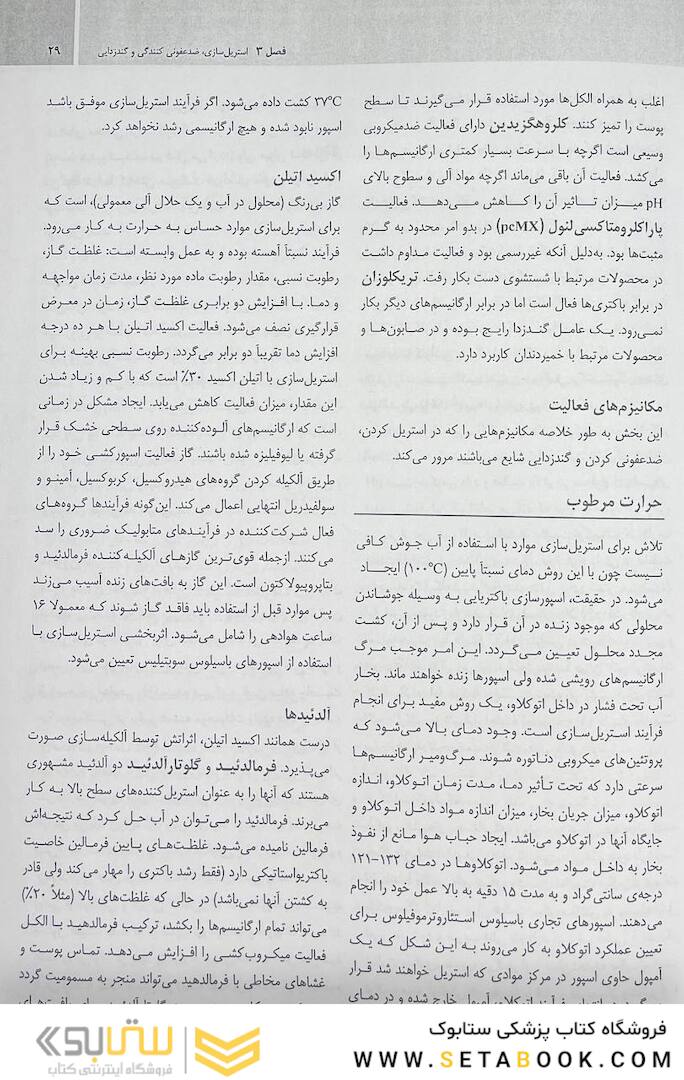 فصل ۳ استریل‌سازی، ضدعفونی کنندگی و گندزدایی ۲۹
اغلب به همراه الکل‌ها مورد استفاده قرار می‌گیرند تا سطح
پوست را تمیز کنند. کلروهگزیدین دارای فعالیت ضدمیکروبی
وسیعی است اگرچه با سرعت بسیار کمتری ارگانیسم‌ها را
می‌کشد. فعالیت آن باقی می‌ماند اگرچه مواد آلی و سطوح بالای
pH میزان تاثیر آن را کاهش می‌دهد. فعالیت
پاراکلرومتاکسی‌لنول (pcMX) در بدو امر محدود به گرم
مثبت‌ها بود. به‌دلیل آنکه غیررسمی بود و فعالیت مداوم داشت
در محصولات مرتبط با شستشوی دست بکار رفت. تریکلوزان
در برابر باکتری‌ها فعال است اما در برابر ارگانیسم‌های دیگر بکار
نمی‌رود. یک عامل گندزدا رایج بوده و در صابون‌ها و
محصولات مرتبط با خمیردندان کاربرد دارد.
مکانیزم‌های فعالیت
این بخش به طور خلاصه مکانیزم‌هایی را که در استریل کردن،
ضدعفونی کردن و گندزدایی شایع می‌باشند مرور می‌کند.
حرارت مرطوب
تلاش برای استریل‌سازی موارد با استفاده از آب جوش کافی
نیست چون با این روش دمای نسبتاً پایین (۱۰۰°C) ایجاد
می‌شود. در حقیقت، اسپورسازی باکتریایی به وسیله جوشاندن
محلولی که موجود زنده در آن قرار دارد و پس از آن، کشت
مجدد محلول تعیین می‌گردد. این امر موجب مرگ
ارگانیسم‌های رویشی شده ولی اسپورها زنده خواهند ماند. بخار
آب تحت فشار در داخل اتوکلاو، یک روش مفید برای انجام
فرآیند استریل‌سازی است. وجود دمای بالا می‌شود که
پروتئین‌های میکروبی دناتوره شوند. مرگ‌ومیر ارگانیسم‌ها
سرعتی دارد که تحت تأثیر دما، مدت زمان اتوکلاو، اندازه
اتوکلاو، میزان جریان بخار، میزان اندازه مواد داخل اتوکلاو و
جایگاه آنها در اتوکلاو می‌باشد. ایجاد حباب هوا مانع از نفوذ
بخار به داخل مواد می‌شود. اتوکلاوها در دمای ۱۳۲-۱۲۱
درجه‌ی سانتی‌گراد و به مدت ۱۵ دقیقه به بالا عمل خود را انجام
می‌دهند. اسپورهای تجاری باسیلوس استئاروترموفیلوس برای
تعیین عملکرد اتوکلاو به کار می‌روند به این شکل که یک
آمپول حاوی اسپور در مرکز موادی که استریل خواهند شد قرار
فرآیند اتوکلاو، آمپول خارج شده و در دمای
۳۷°C کشت داده می‌شود. اگر فرآیند استریل‌سازی موفق باشد
اسپور نابود شده و هیچ ارگانیسمی رشد نخواهد کرد.
اکسید اتیلن
گاز بی‌رنگ (محلول در آب و یک حلال آلی معمولی)، است که
برای استریل‌سازی موارد حساس به حرارت به کار می‌رود.
فرآیند نسبتاً آهسته بوده و به عمل وابسته است: غلظت گاز،
رطوبت نسبی، مقدار رطوبت ماده مورد نظر، مدت زمان مواجهه
و دما. با افزایش دو برابری غلظت گاز، زمان در معرض
قرارگیری نصف می‌شود. فعالیت اکسید اتیلن با هر ده درجه
افزایش دما تقریباً دو برابر می‌گردد. رطوبت نسبی بهینه برای
استریل‌سازی با اتیلن اکسید ۳۰٪ است که با کم و زیاد شدن
این مقدار، میزان فعالیت کاهش می‌یابد. ایجاد مشکل در زمانی
است که ارگانیسم‌های آلوده‌کننده روی سطحی خشک قرار
گرفته یا لیوفیلیزه شده باشند. گاز فعالیت اسپورکشی خود را از
طریق آلکیله کردن گروه‌های هیدروکسیل، کربوکسیل، آمینو و
سولفیدریل انتهایی اعمال می‌کند. این‌گونه فرآیندها گروه‌های
فعال شرکت‌کننده در فرآیندهای متابولیک ضروری را سد
می‌کنند. ازجمله قوی‌ترین گازهای آلکیله‌کننده فرمالدئید و
بتاپروپیولاکتون است. این گاز به بافت‌های زنده آسیب می‌زند
پس موارد قبل از استفاده باید فاقد گاز شوند که معمولا ۱۶
ساعت هوادهی را شامل می‌شود. اثربخشی استریل‌سازی با
استفاده از اسپورهای باسیلوس سوبتیلیس تعیین می‌شود.
آلدئیدها
درست همانند اکسید اتیلن، اثراتش توسط آلکیله‌سازی صورت
می‌پذیرد. فرمالدئید و گلوتارآلدئید دو آلدئید مشهوری
هستند که آنها را به عنوان استریل‌کننده‌های سطح بالا به کار
می‌برند. فرمالدئید را می‌توان در آب حل کرد که نتیجه‌اش
فرمالین نامیده می‌شود. غلظت‌های پایین فرمالین خاصیت
باکتریواستاتیکی دارد (فقط رشد باکتری را مهار می‌کند ولی قادر
به کشتن آنها نمی‌باشد) در حالی که غلظت‌های بالا (مثلاً ۲۰٪)
می‌تواند تمام ارگانیسم‌ها را بکشد، ترکیب فرمالدهید با الکل
فعالیت میکروب‌کشی را افزایش می‌دهد. تماس پوست و
غشاهای مخاطی با فرمالدهید می‌تواند منجر به مسمومیت گردد
فروشگاه کتاب پزشکی ستابوک
WWW.SETABOOK.COM
ستابوک
فروشگاه اینترنتی کتاب